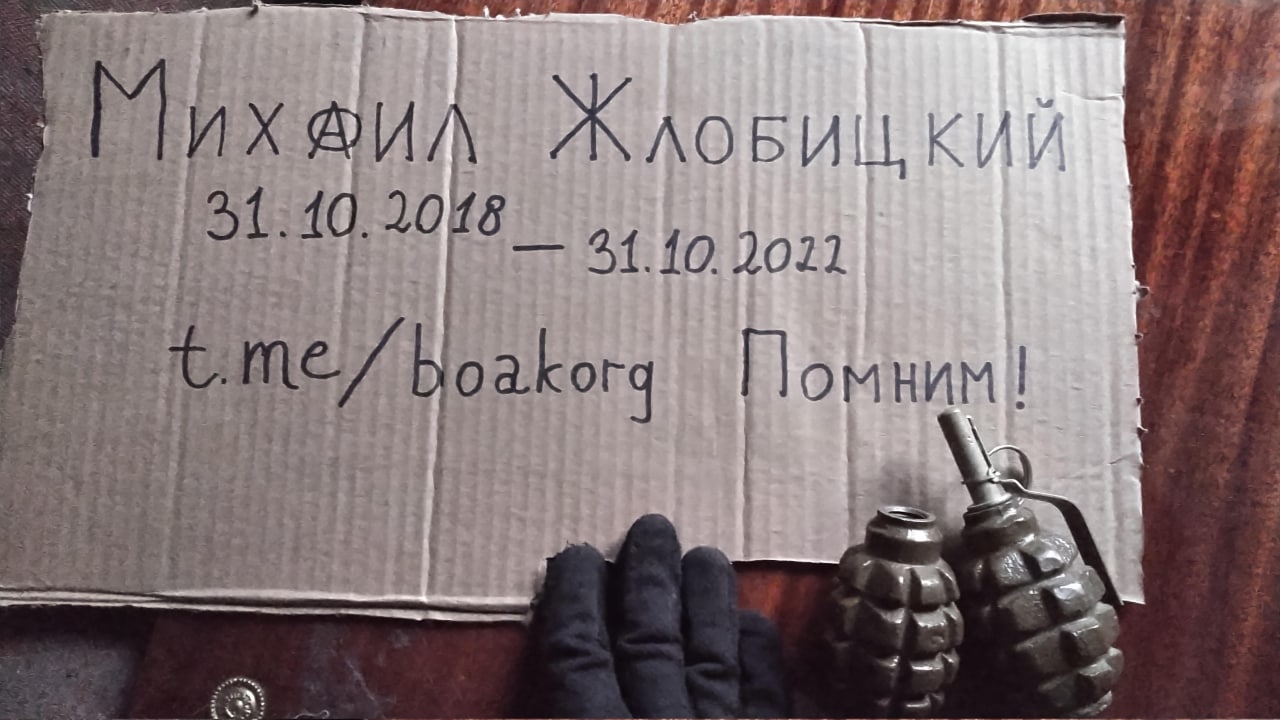 Михаил Жлобицкий
31.10.2018 — 31.10.2022
t.me/boakorg Помним!